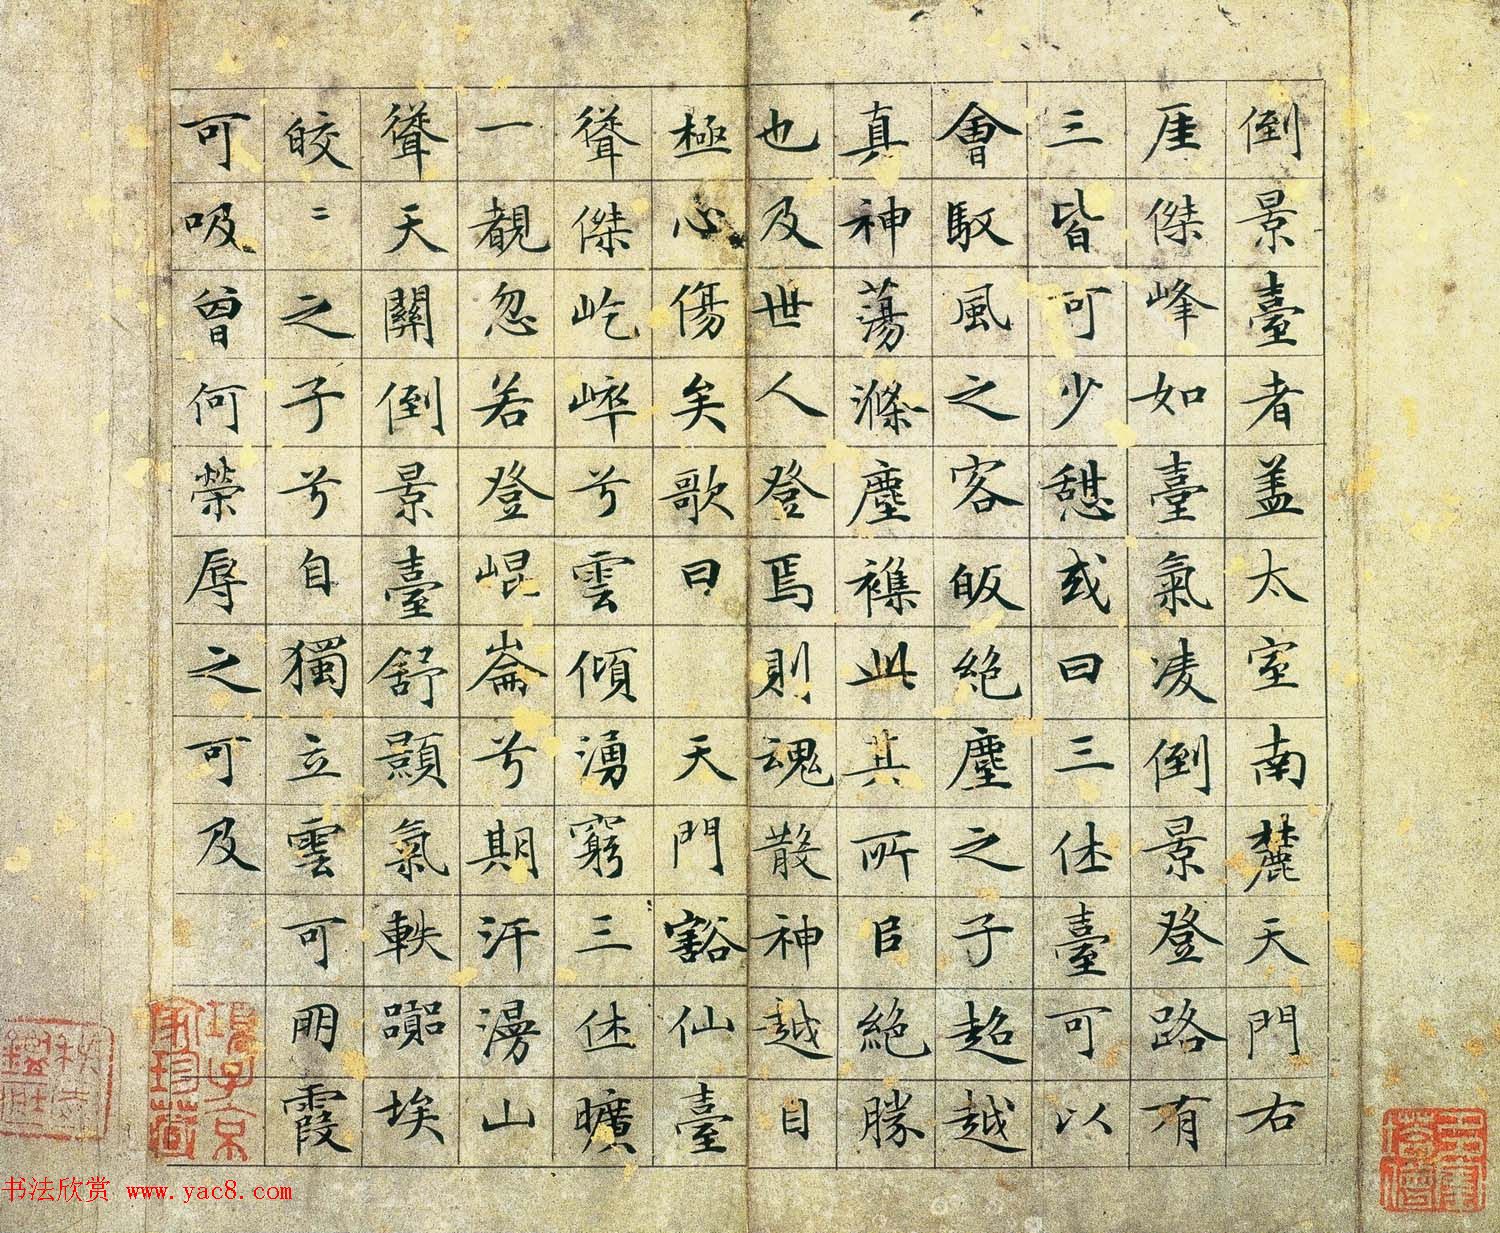 倒景臺者蓋太室南麓天門右
厓傑峰如臺氣凌倒景登路有
三皆可少憩或曰三休臺可以
會馭風之客皈絕塵之子超越
真神蕩滌塵襟此其所㠯絕勝
也及世人登焉則魂散神越目
極心傷矣歌曰 天門豁仙臺
聳傑屹崒兮雲傾湧窮三休曠
一覩忽若登崐崙兮期汗漫山
聳天關倒景臺舒顥氣軼囂埃
皎〻之子兮自獨立雲可朋霞
可吸曾何榮辱之可及
項子京家珍藏
书法欣赏 www.yac8.com